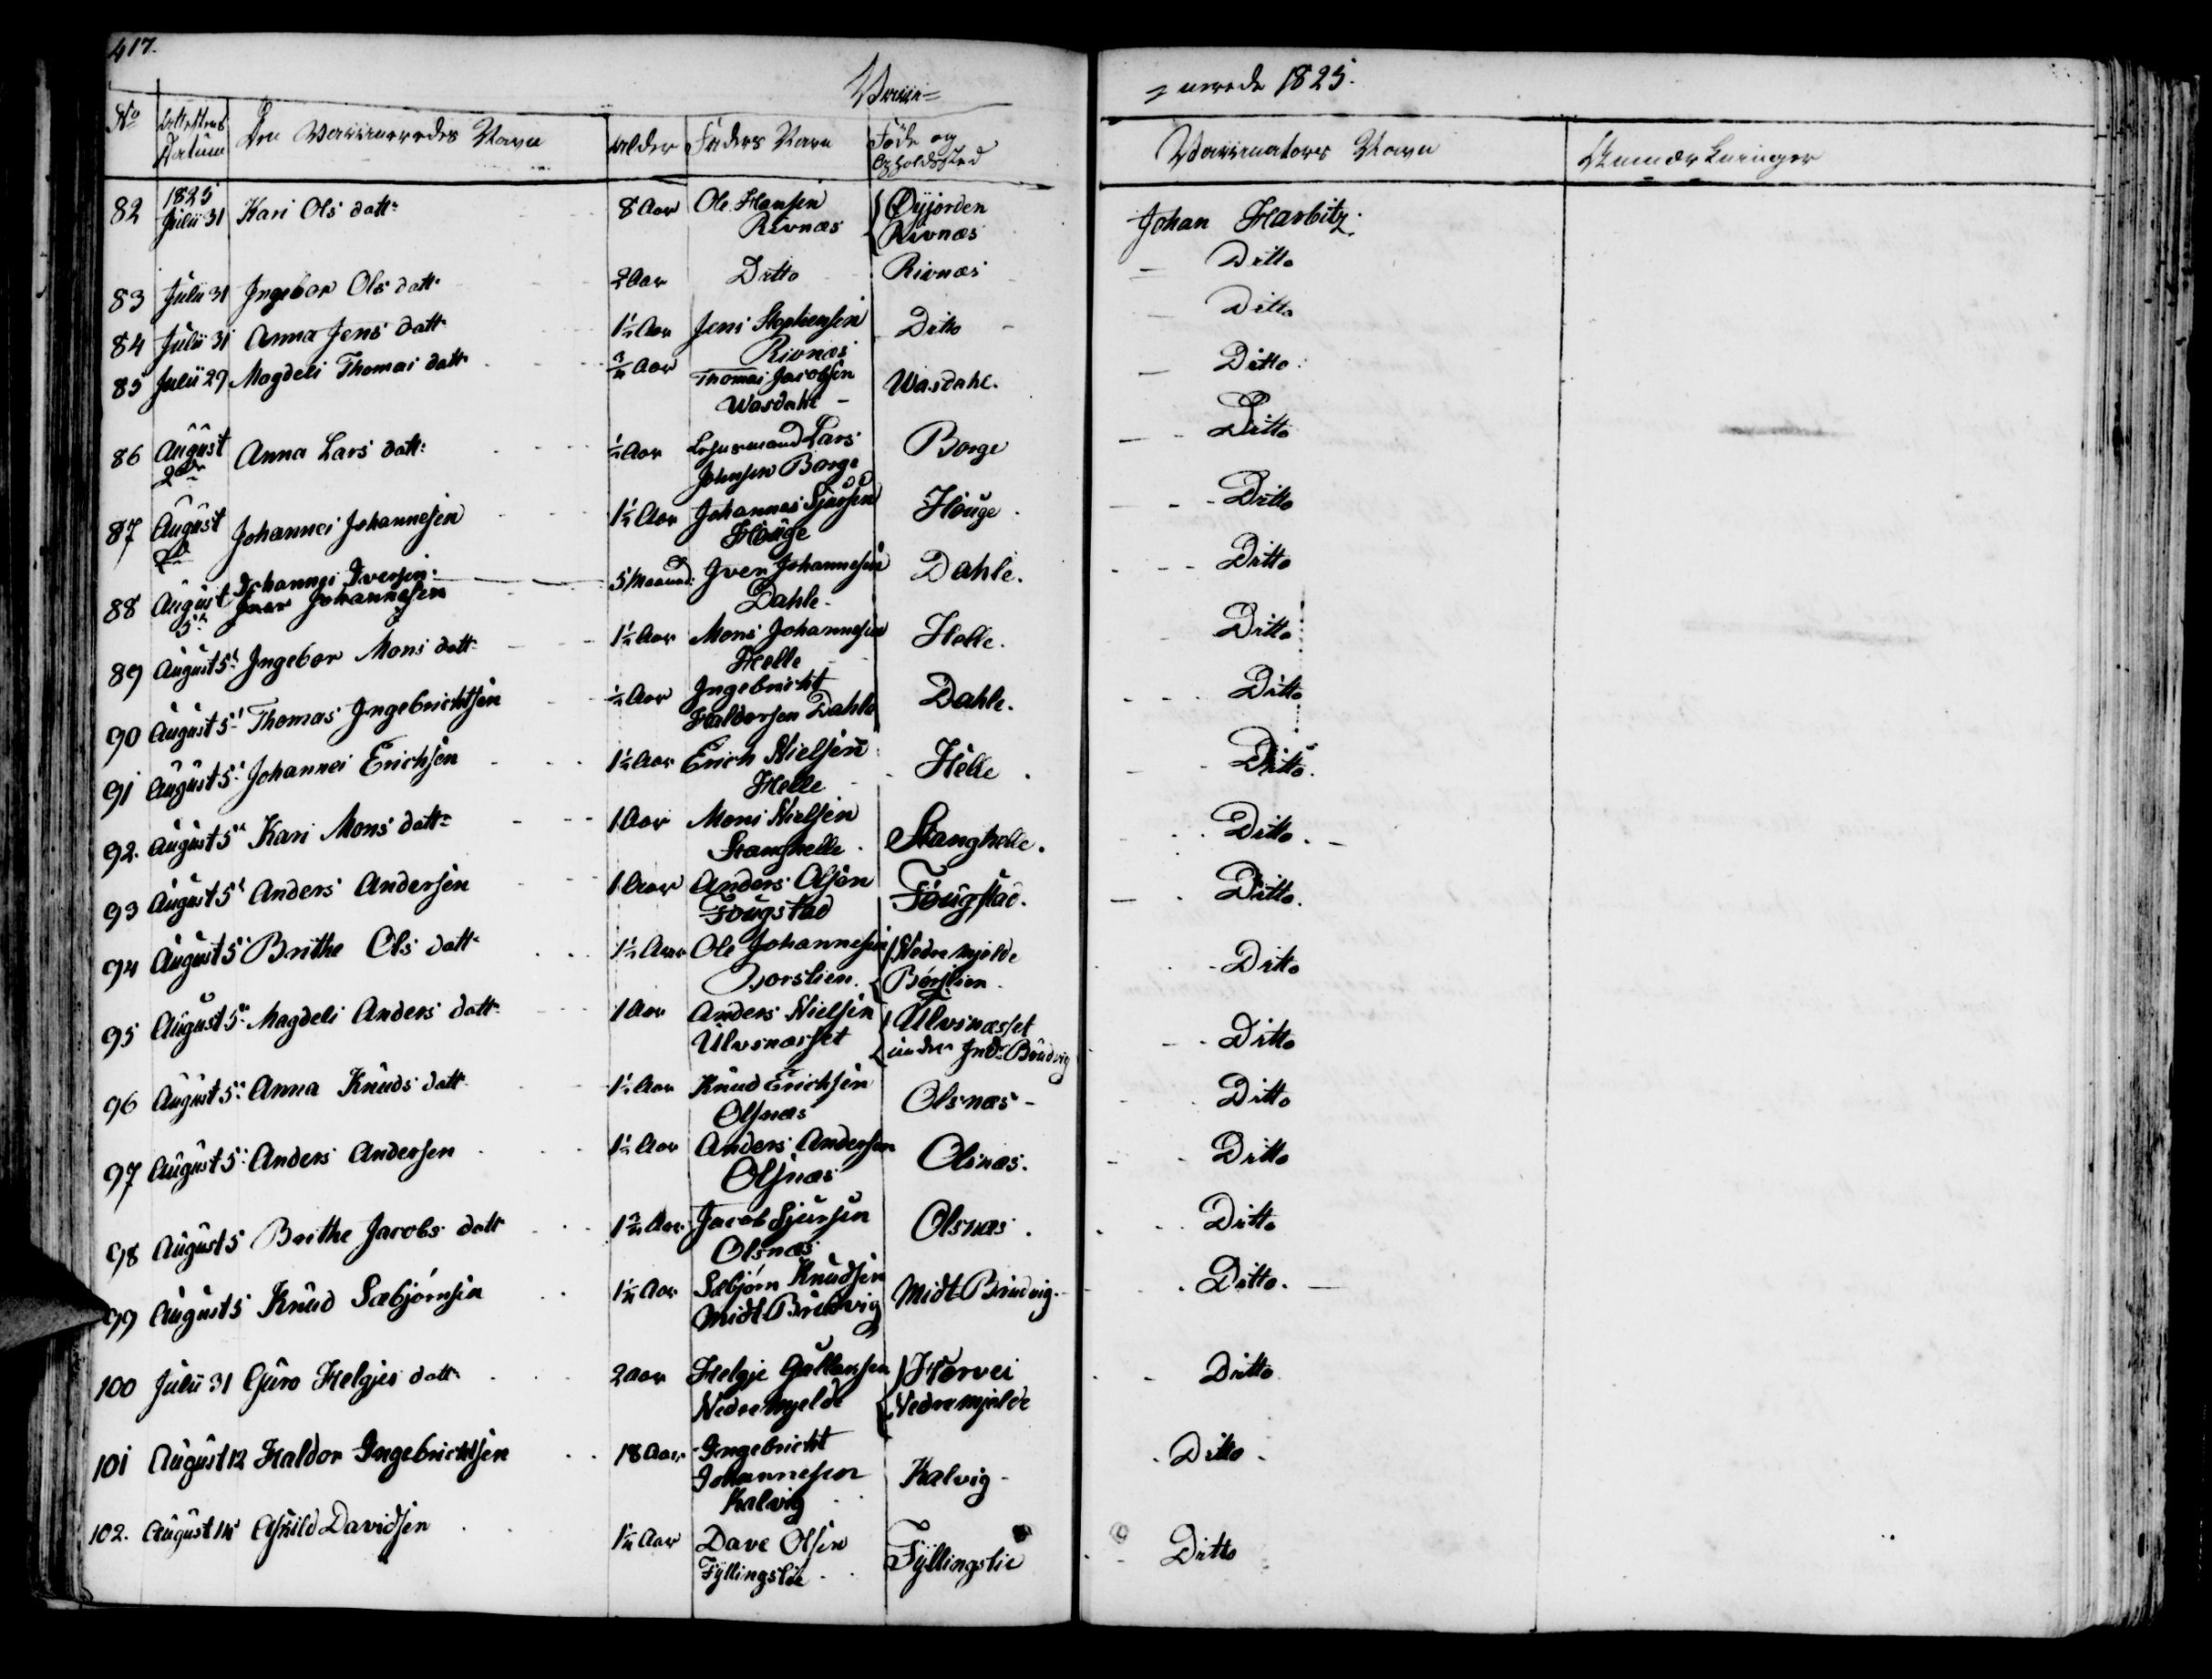 417.
Vacci=
=nerede 1825.
No Attestens Datum Den Vaccineredes Navn Alder Faders Navn Føde og Opholdssted Vaccinators Navn Anmærkninger
1825
82 Julii 31 Kari Ols datt: 8 Aar Ole Hansen Øyjorden Johan Harbitz.
Rivnæs Rivnæs
83 Julii 31 Ingebor Ols datt: 2 Aar Ditto Rivnæs Ditto
84 Julii 31 Anna Jens datt: 1½ Aar Jens Stephensen Ditto Ditto
Rivnæs
85 Julii 29 Magdeli Thomas datt: ¾ Aar Thomas Jacobsen Wasdahl. Ditto
Wasdahl
86 August Anna Lars datt: ½ Aar Lars Borge Ditto
2den Johnsen Borge
87 August Johannes Johannesen 1½ Aar Johannes Sjursen Houge Ditto
Houge
Johannes Iversen
88 August Iver Johannesen 5 Maaned: Iver Johannesen Dahle. Ditto
5te Dahle
89 August 5te Ingebor Mons datt: 1½ Aar Mons Johannesen Helle. Ditto
Helle
90 August 5te Thomas Ingebrichtsen ½ Aar Ingebricht Dahle. Ditto
Haldorsen Dahle
91 August 5te Johannes Erichsen 1½ Aar Erich Nielsen Helle Ditto.
Helle
92. August 5te Kari Mons datt: 1 Aar Mons Nielsen Stanghelle. Ditto.
Stanghelle
93 August 5te Anders Andersen 1 Aar Anders Olsen Fougstad. Ditto.
Fougstad
94 August 5te Brithe Ols datt: 1½ Aar Ole Johannesen Nedre Mjelde Ditto
Børslien. Børslien.
95 August 5te Magdeli Anders datt: 1 Aar Anders Nielsen Ulvsnæsset Ditto
Ulvsnæsset under Indr Bruvig
96 August 5te Anna Knuds datt: 1½ Aar Knud Erichsen Olsnæs Ditto
Olsnæs
97 August 5te Anders Andersen 1½ Aar Anders Andersen Olsnæs. Ditto
Olsnæs
98 August 5 Brithe Jacobs datt 1¾ Aar Jacob Sjursen Olsnæs. Ditto
Olsnæs
99 August 5 Knud Sæbjørnsen 1¼ Aar Sæbjørn Knudsen Midt Bruvig Ditto.
Midt-Bruvig
100 Julii 31 Guro Helgjes datt: 2 Aar Helgje Gullaksen Hervei Ditto
Nedre Mjelde Nedre Mjelde
101 August 12 Haldor Ingebrichtsen 18 Aar Ingebricht Kalvig Ditto
Johannesen
Kalvig
102. August 14 Davidsen 1¼ Aar Dave Olsen Fyllingslie Ditto
Fyllingslie